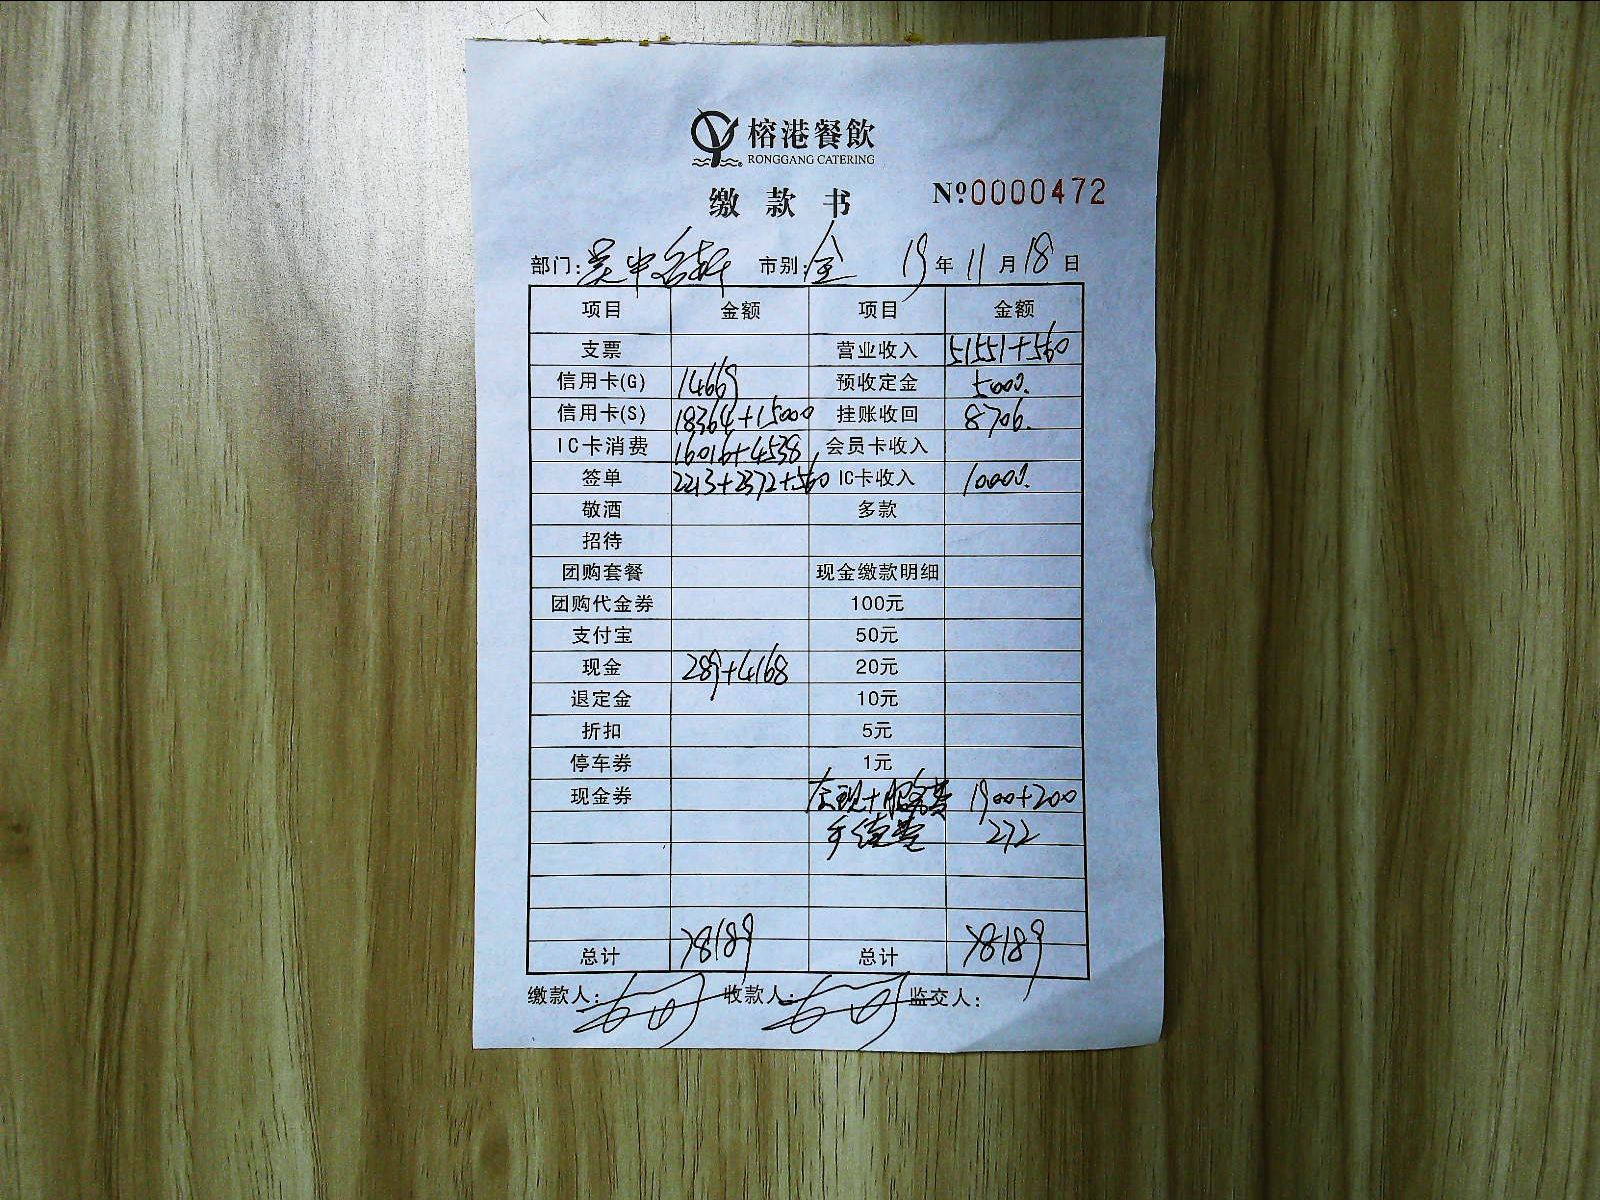 榕港餐飲
RONGGANG CATERING
缴款书 Nº0000472
部门: 吴中名轩 市别: 全 19年11月18日
项目 金额 项目 金额
支票 营业收入 51551+560
信用卡(G) 14669 预收定金 5000.
信用卡(S) 18364+15000 挂账收回 8706.
IC卡消费 16016+4538 会员卡收入
签单 2213+2372+560 IC卡收入 10000.
敬酒 多款
招待
团购套餐 现金缴款明细
团购代金券 100元
支付宝 50元
现金 289+4168 20元
退定金 10元
折扣 5元
停车券 1元
现金券 套现+服务费 1900+200
手续费 272
总计 78189 总计 78189
缴款人: 收款人: 监交人: